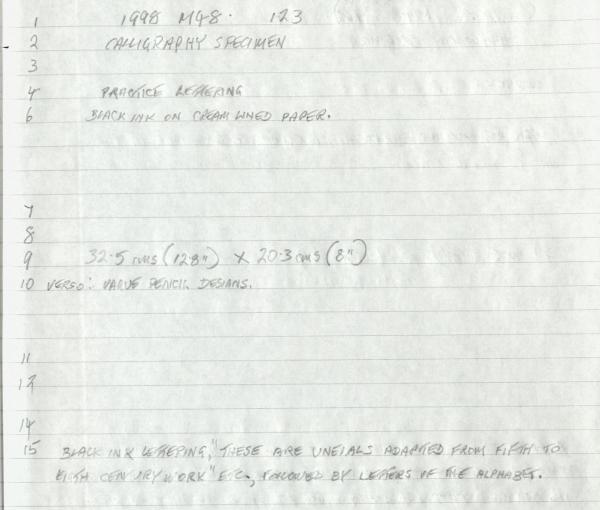 1 1998 M48. 123
2 CALLIGRAPHY SPECIMEN
3
4 PRACTICE LETTERING
6 BLACK INK ON CREAM LINED PAPER.
7
8
9 32.5 cms (12.8") X 20.3 cms (8")
10 VERSO: VAGUE PENCIL DESIGNS.
11
12
14
15 BLACK INK LETTERING, "THESE ARE UNCIALS ADAPTED FROM FIFTH TO
EIGHTH CENTURY WORK" ETC., FOLLOWED BY LETTERS OF THE ALPHABET.